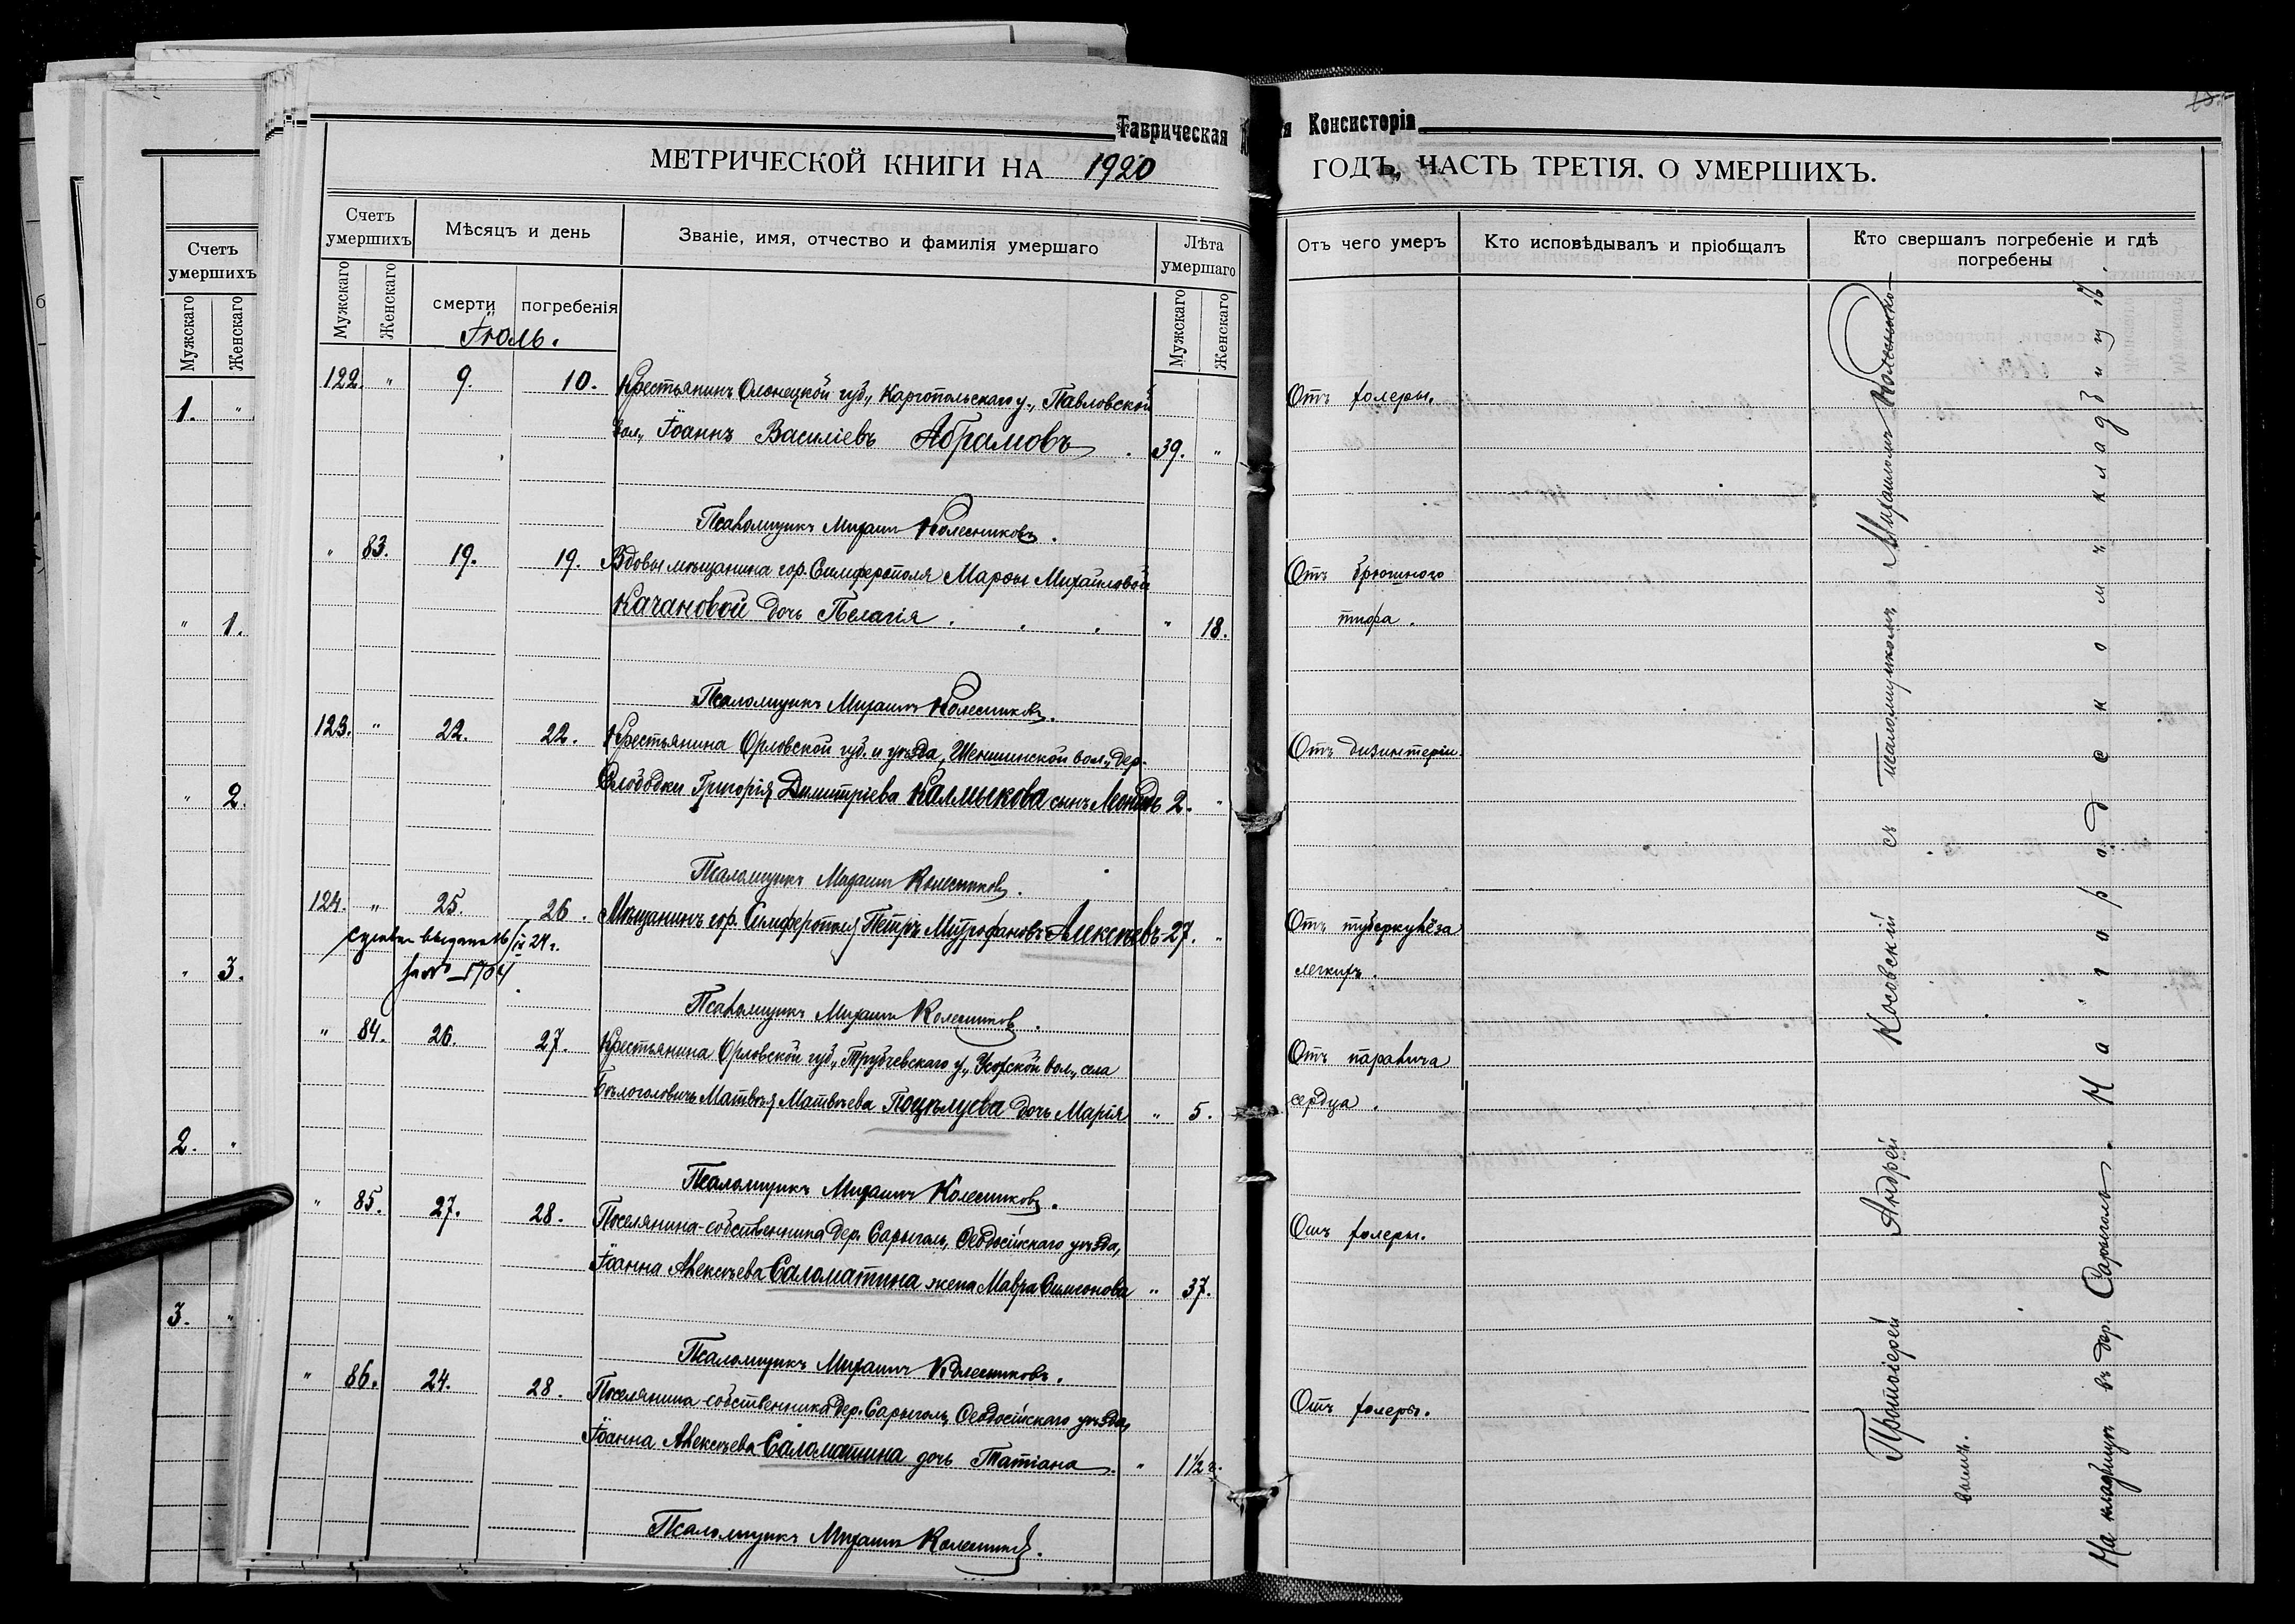 Таврическая
Консисторія
МЕТРИЧЕСКОЙ КНИГИ НА 1920
ГОДЪ, ЧАСТЬ ТРЕТІЯ. О УМЕРШИХЪ.
Счетъ умершихъ
Мужскаго
Женскаго
1. "
" 1.
" 2.
" 3.
2. "
3. "
Счетъ умершихъ
Мѣсяцъ и день
Званіе, имя, отчество и фамилія умершаго
Лѣта умершаго
Отъ чего умеръ
Кто исповѣдывалъ и пріобщалъ
Кто свершалъ погребеніе и гдѣ погребены
Мужскаго
Женскаго
смерти
погребенія
Мужскаго
Женскаго
Іюль.
122. " 9. 10. Крестьянинъ Олонецкой губ., Каргопольскаго у., Павловской
вол., Іоаннъ Василіевъ Абрамовъ. 39. "
Отъ холеры.
Псаломщикъ Михаилъ Колесниковъ.
" 83. 19. 19. Вдовы мѣщанина гор. Симферополя Марѳы Михайловой
Качановой дочь Пелагія . . . " 18.
Отъ брюшного
тифа.
Псаломщикъ Михаилъ Колесниковъ.
123. " 22. 22. Крестьянина Орловской губ. и уѣзда, Шеншинской вол., дер.
Слободки Григорія Димитріева Калмыкова сынъ Леонидъ 2. "
Отъ дизинтеріи.
Псаломщикъ Михаилъ Колесниковъ.
124. " 25. 26. Мѣщанинъ гор. Симферополя Петръ Митрофановъ Алексѣевъ 27. "
24 г.
за № 1704
Отъ туберкулёза
легкихъ.
Псаломщикъ Михаилъ Колесниковъ.
" 84. 26. 27. Крестьянина Орловской губ., Трубчевскаго у., вол., села
Бѣлоголовичъ Матвѣя Матвѣева Поцѣлуева дочь Марія " 5.
Отъ паралича
сердца.
Псаломщикъ Михаилъ Колесниковъ.
" 85. 27. 28. Поселянина-собственника дер. Сарыголь, Ѳеодосійскаго уѣзда,
Іоанна Алексѣева Саломатина жена Мавра Симеонова " 37.
Отъ холеры.
Псаломщикъ Михаилъ Колесниковъ.
" 86. 24. 28. Поселянина-собственника дер. Сарыголь, Ѳеодосійскаго уѣзда,
Іоанна Алексѣева Саломатина дочь Татіана. " 1½ г.
Отъ холеры.
Псаломщикъ Михаилъ Колесниковъ.
Протоіерей Андрей Косовскій съ псаломщикомъ Михаиломъ Колеснико-
вымъ.
На кладбищѣ въ дер. Сарыголь. На городскомъ кладбищѣ.